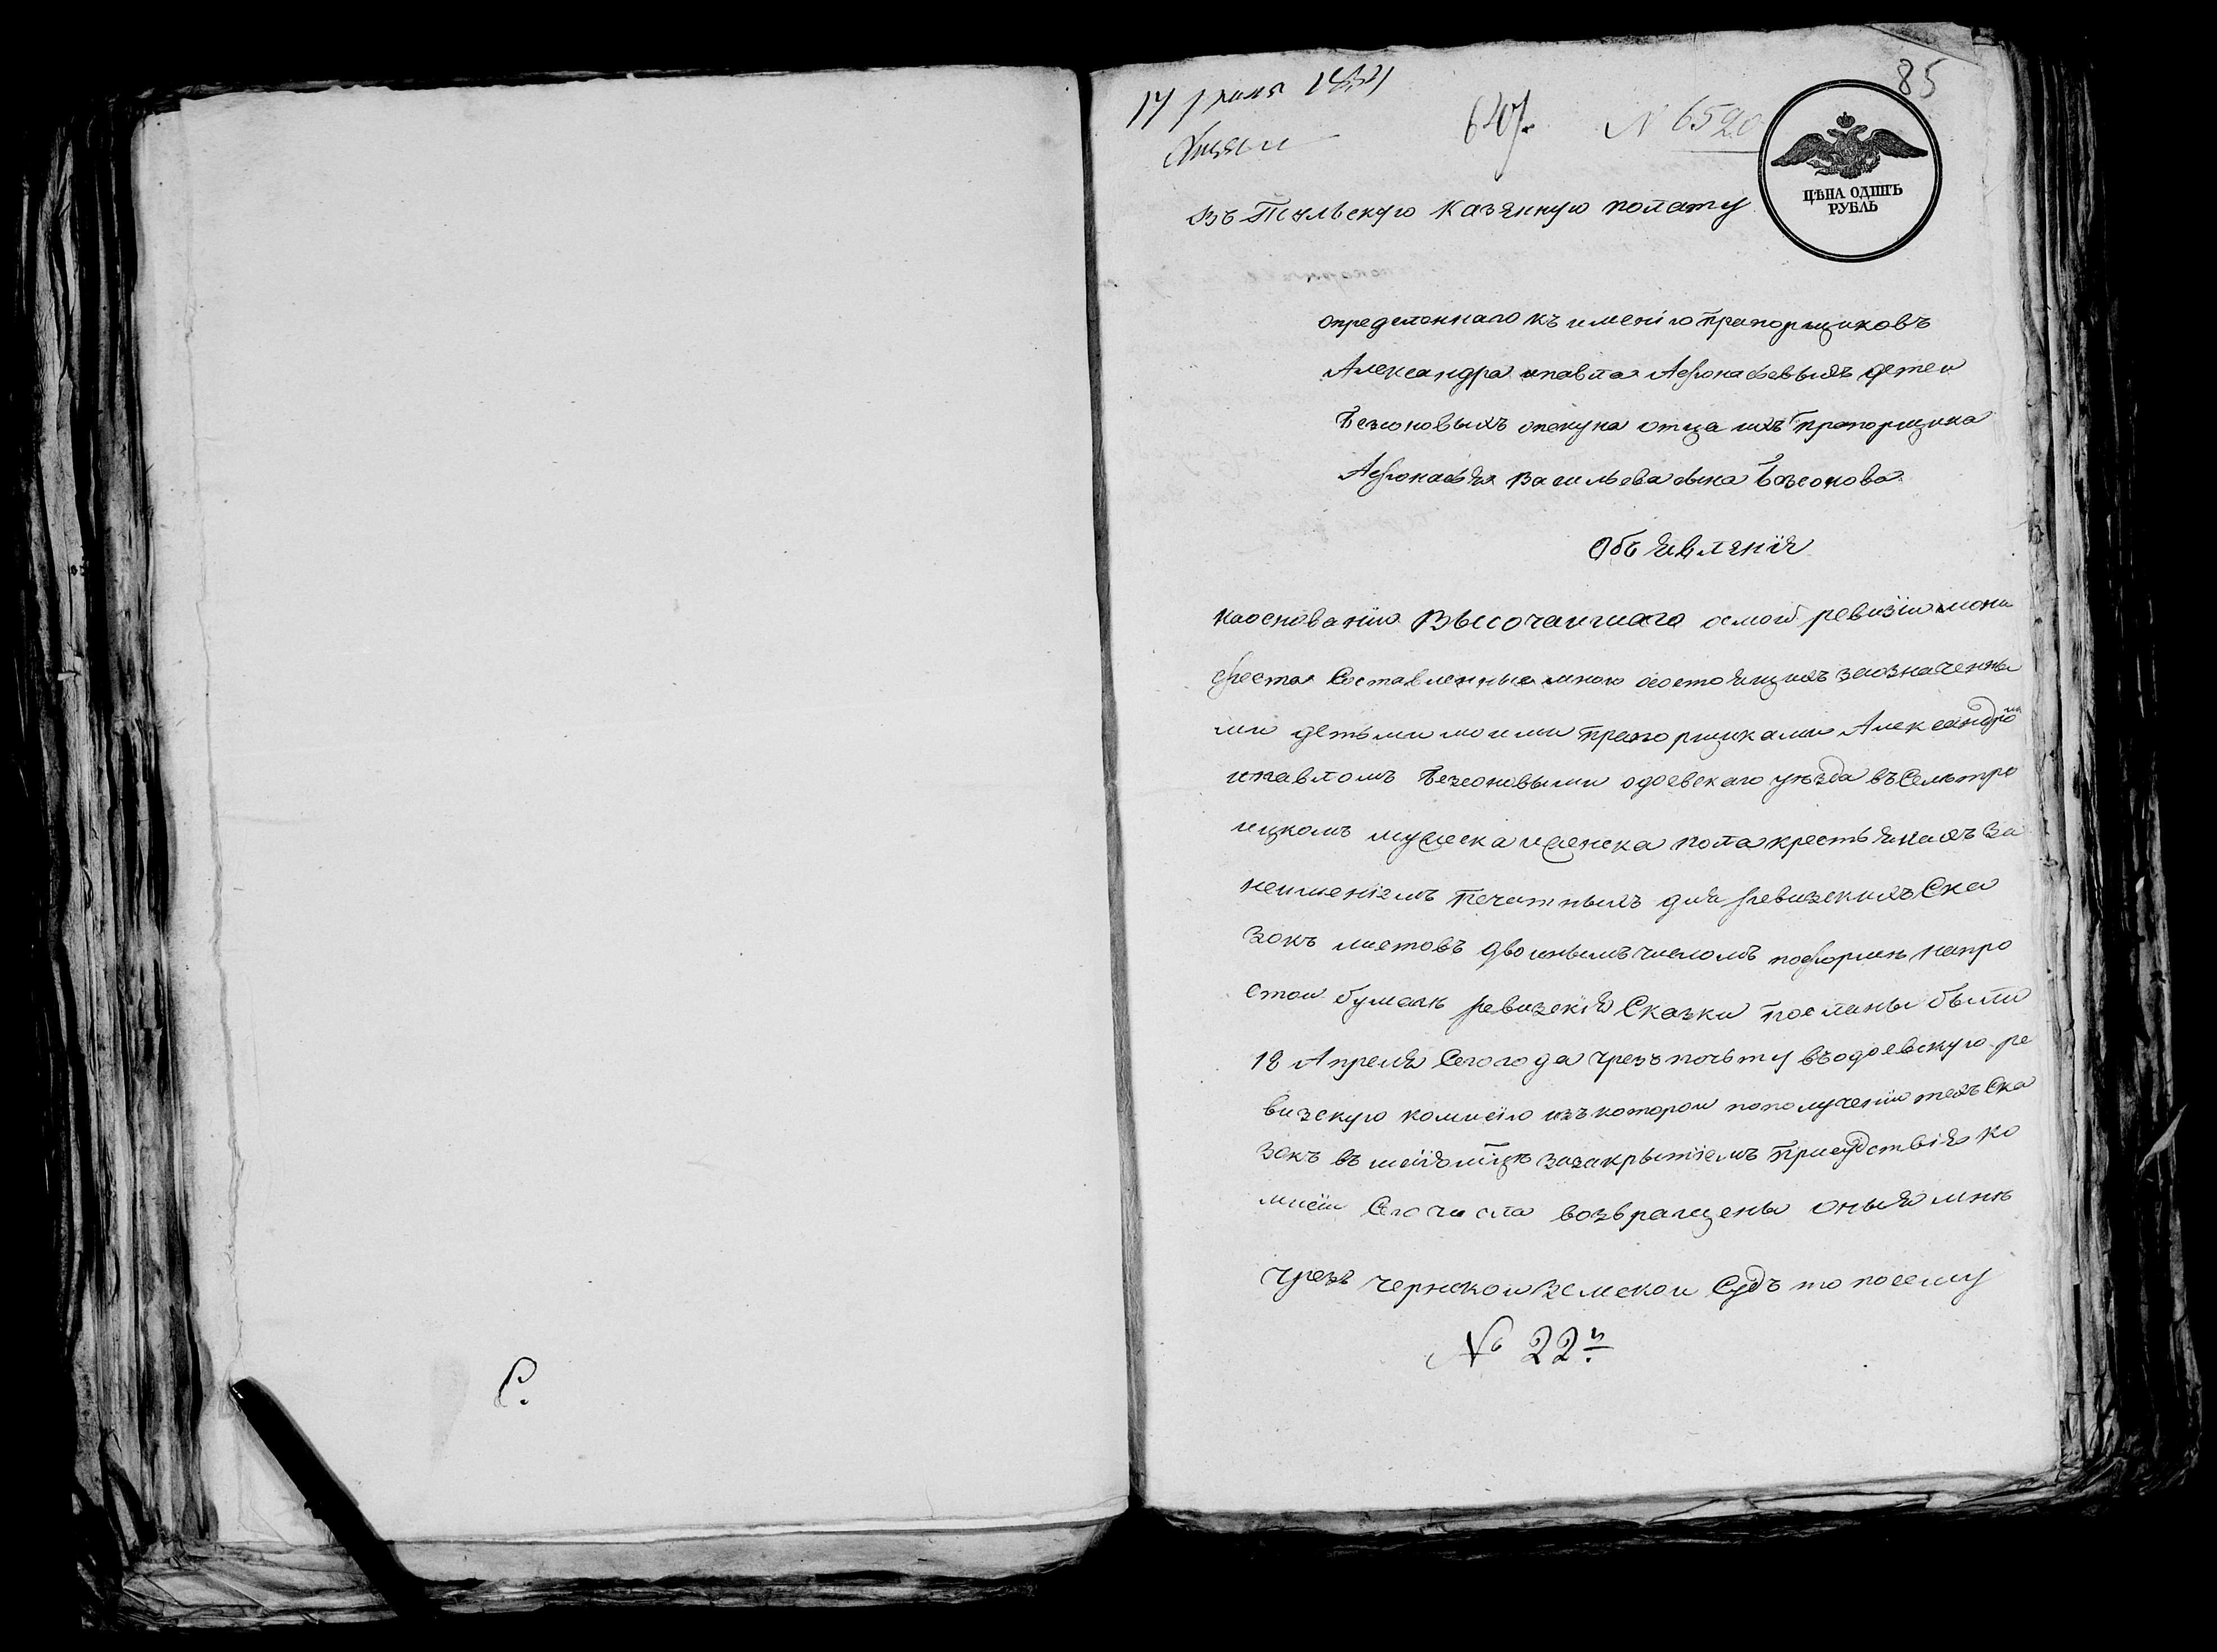 С.
85
17 июня 1834
N 6520
ЦѢНА ОДИНЪ
РУБЛЬ
Въ Тульскую казенную полату
определеннаго къ имению прапорщиковъ
Александра ипавла Афонасьевыхъ детеи
Безсоновыхъ опекуна отца ихъ прапорщика
Афонасья Васильева сына Безсонова
Объявление
Наоснованіи Высочаишаго осмой ревизіи мани
феста Составленные мною осостоящихъ заозначенны
ми детьми моими прапорщиками Александромъ
ипавломъ Безсоновыми одоевскаго уѣзда въ Селѣ тро
ицкомъ мужеска иженска пола крестьянахъ за
неименіемъ печатныхъ для ревизскихъ Ска
зокъ листовъ двоинымъ числомъ поформѣ напро
стои бумагѣ ревизскія Сказки посланы были
18 Апреля Сего года чрезъ почьту въодоевскую ре
визскую комисію изъ которои пополученіи техъ Ска
зокъ въ маіѣ мцѣ зазакрытіемъ присудствія ко
мисіи Сего числа возвращены оныя мнѣ
чрезъ чернскои Земскои Судъ то посему
№ 22й